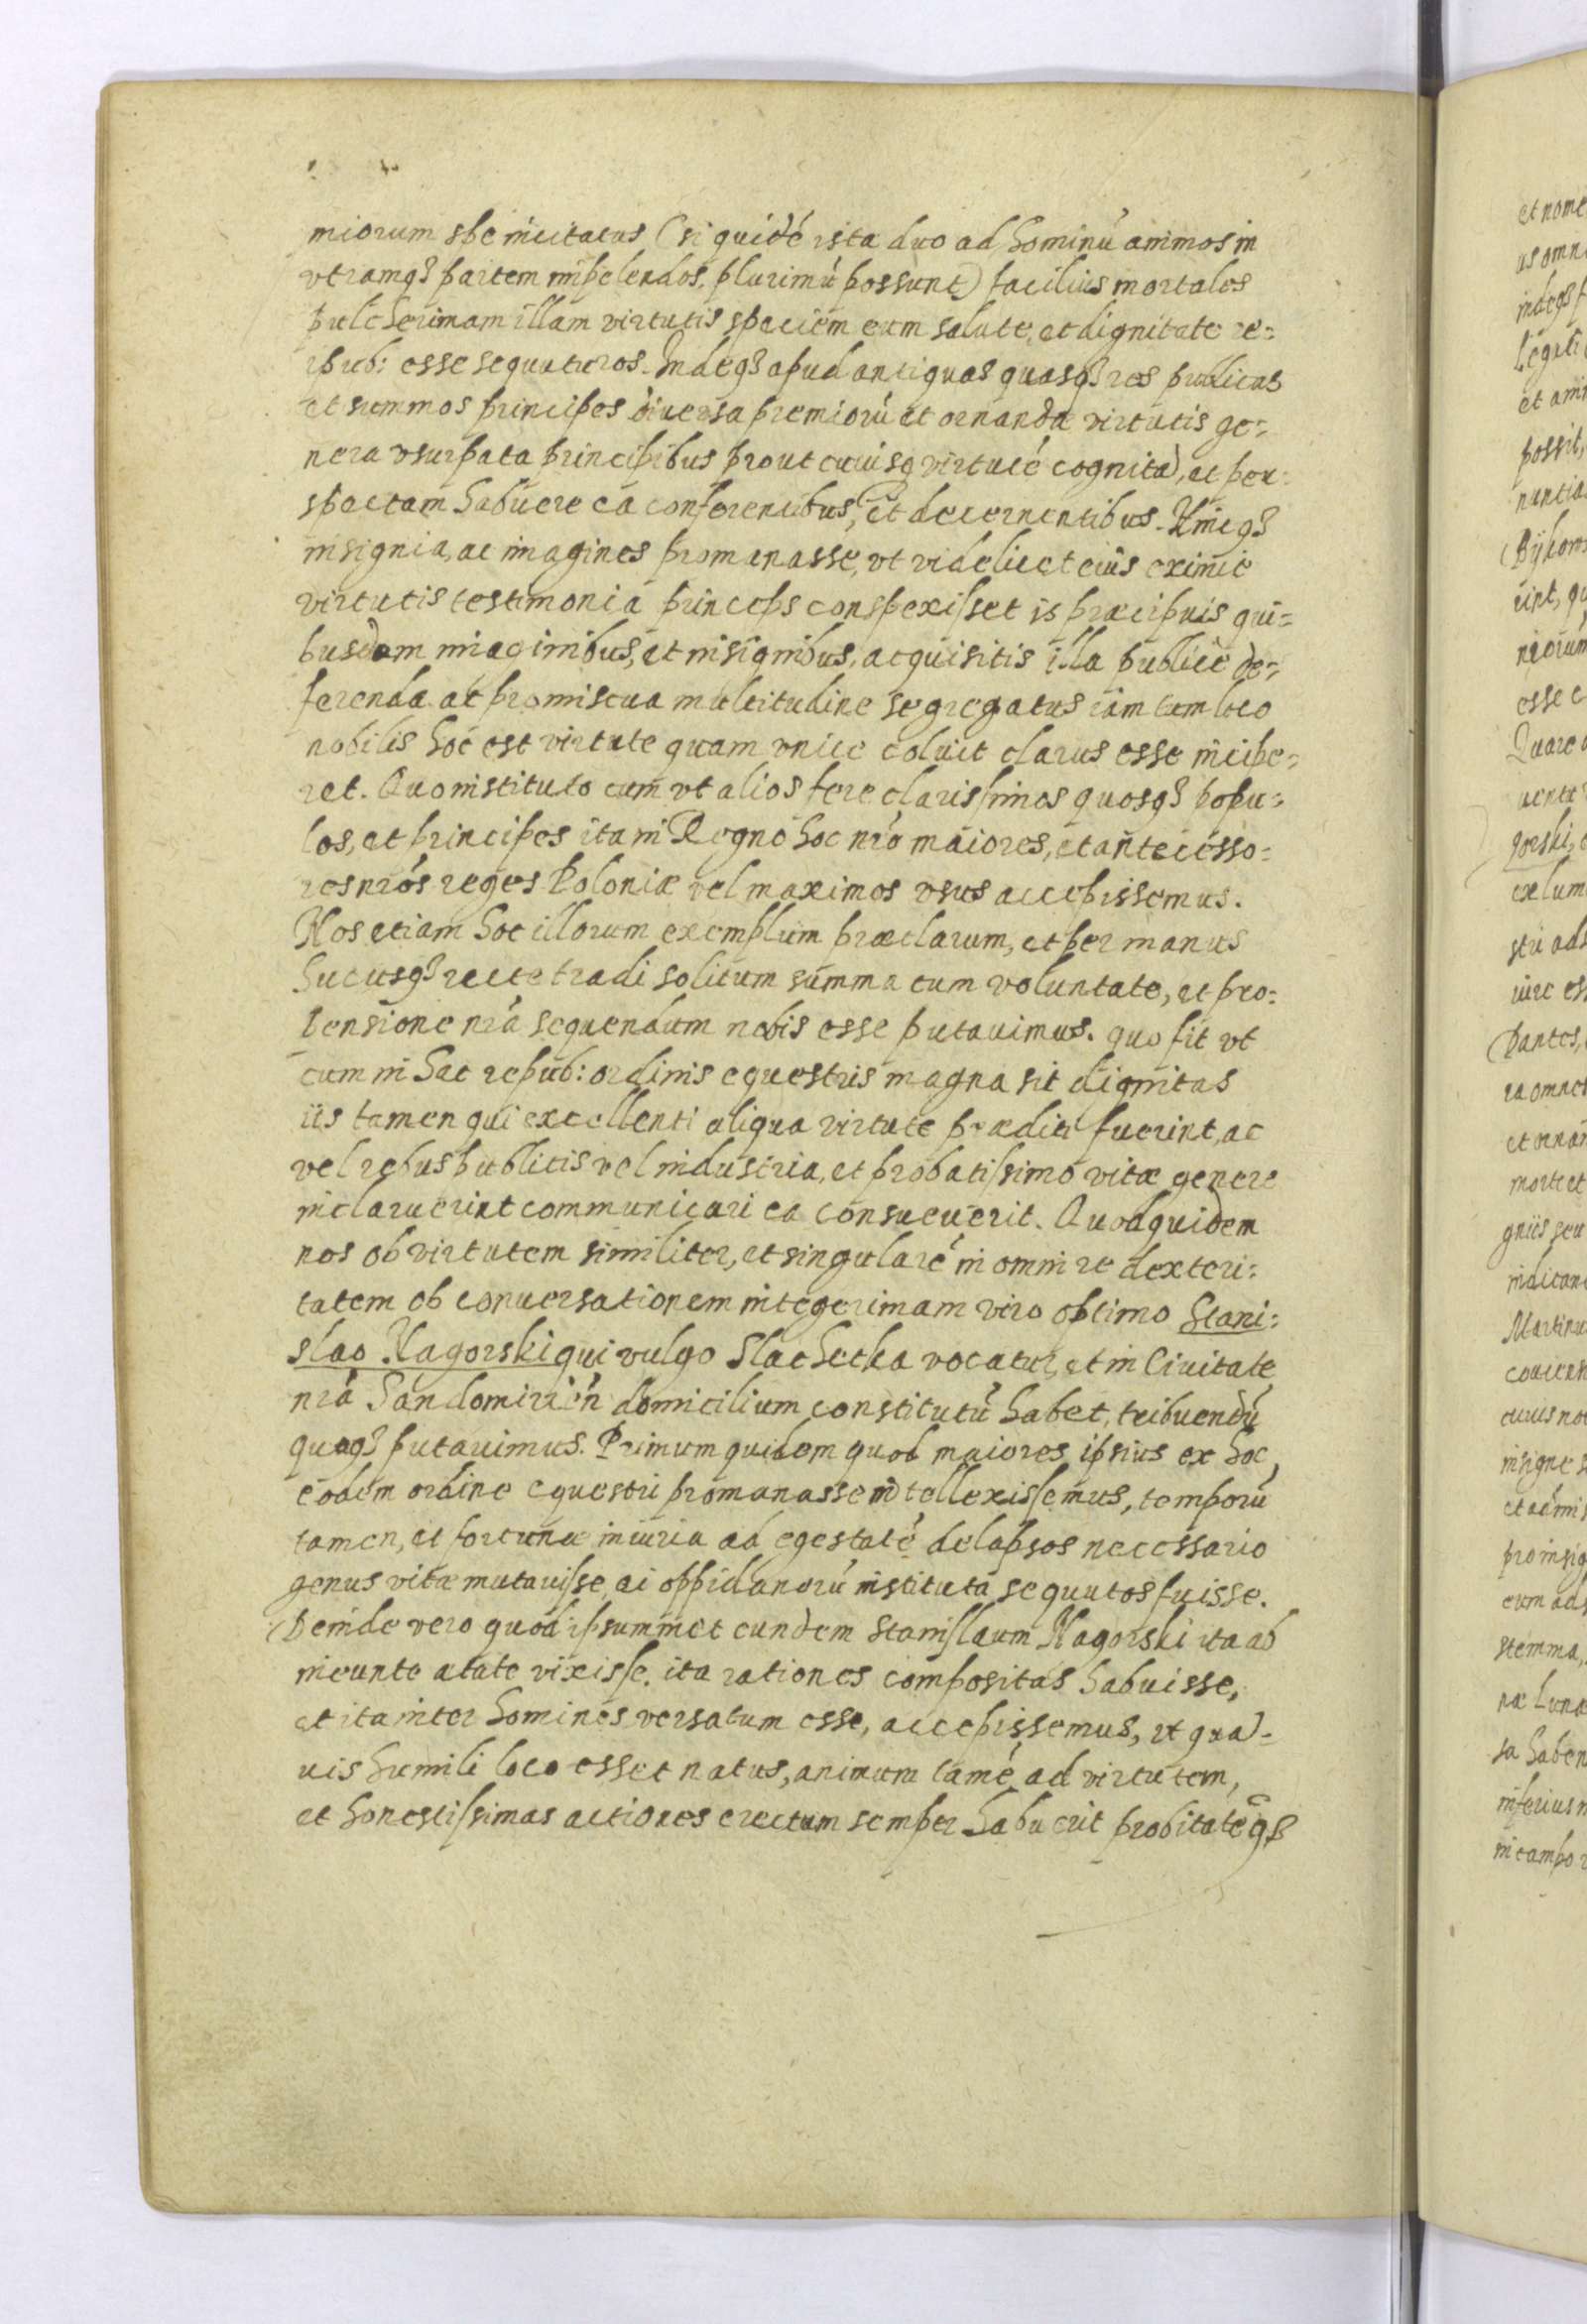 miorum spe incitatus (si quidé ista duo ad hominú animos in
vtramq3 partem impelendos, plurimú possunt) facilius mortales
pulcherimam illam virtutis speciem cum salute, et dignitate re=
ipub: esse sequuturos. Indeq3 apud antiquas quasq3 res publicas
et summos principes diuersa premiorú et ornandæ virtutis ge=
nera vsurpata principibus prout cuiusq virtuté cognitã, et per=
spectam habuere ea conferentibus, et decernentibus. Hincq3
insignia, ac imagines promanasse, vt videlicet cuius eximie
virtutis testimonia princeps conspexisset is præcipuis qui=
busdam imaginibus, et insignibus, acquisitis illa publicè de=
ferenda ac promiscua multitudine segregatus iam tum loco
nobilis hoc est virtute quam vnice coluit clarus esse incipe=
ret. Quo instituto cum vt alios fere clarissimos quosq3 popu=
los, et principes ita in Regno hoc nró maiores, et antecesso=
res nrós reges Poloniæ vel maximos vsus accepissemus.
Nos etiam hoc illorum exemplum præclarum, et per manus
hucusq3 recte tradi solitum summa cum voluntate, et pro=
pensione nrá sequendum nobis esse putauimus. quo fit vt
cum in hac repub: ordinis equestris magna sit dignitas
iis tamen qui excellenti aliqua virtute præditi fuerint, ac
vel rebus publicis vel industria, et probatissimo vitæ genere
inclaruerint communicari ea consueuerit. Quod quidem
nos ob virtutem similiter, et singularé in omni re dexteri=
tatem ob conuersationem integerimam viro optimo Stani=
slao Nagorski qui vulgo Slachetka vocatur, et in Ciuitate
nrá Sandomirién domicilium constitutú habet, tribuendú
quoq3 putauimus. Primum quidem quod maiores ipsius ex hoc
eodem ordine equestri promanasse intellexissemus, temporú
tamen, et fortunæ iniuria ad egestaté delapsos necessario
genus vitæ mutauisse, ac oppidanorú instituta sequutos fuisse.
Deinde vero quod ipsummet eundem Stanislaum Nagorski ita ab
ineunte ætate vixisse, ita rationes compositas habuisse,
et ita inter homines versatum esse, accepissemus, vt quã=
uis humili loco esset natus, animum tamé ad virtutem,
et honestissimas actiones erectum semper habuerit probitatẽq3